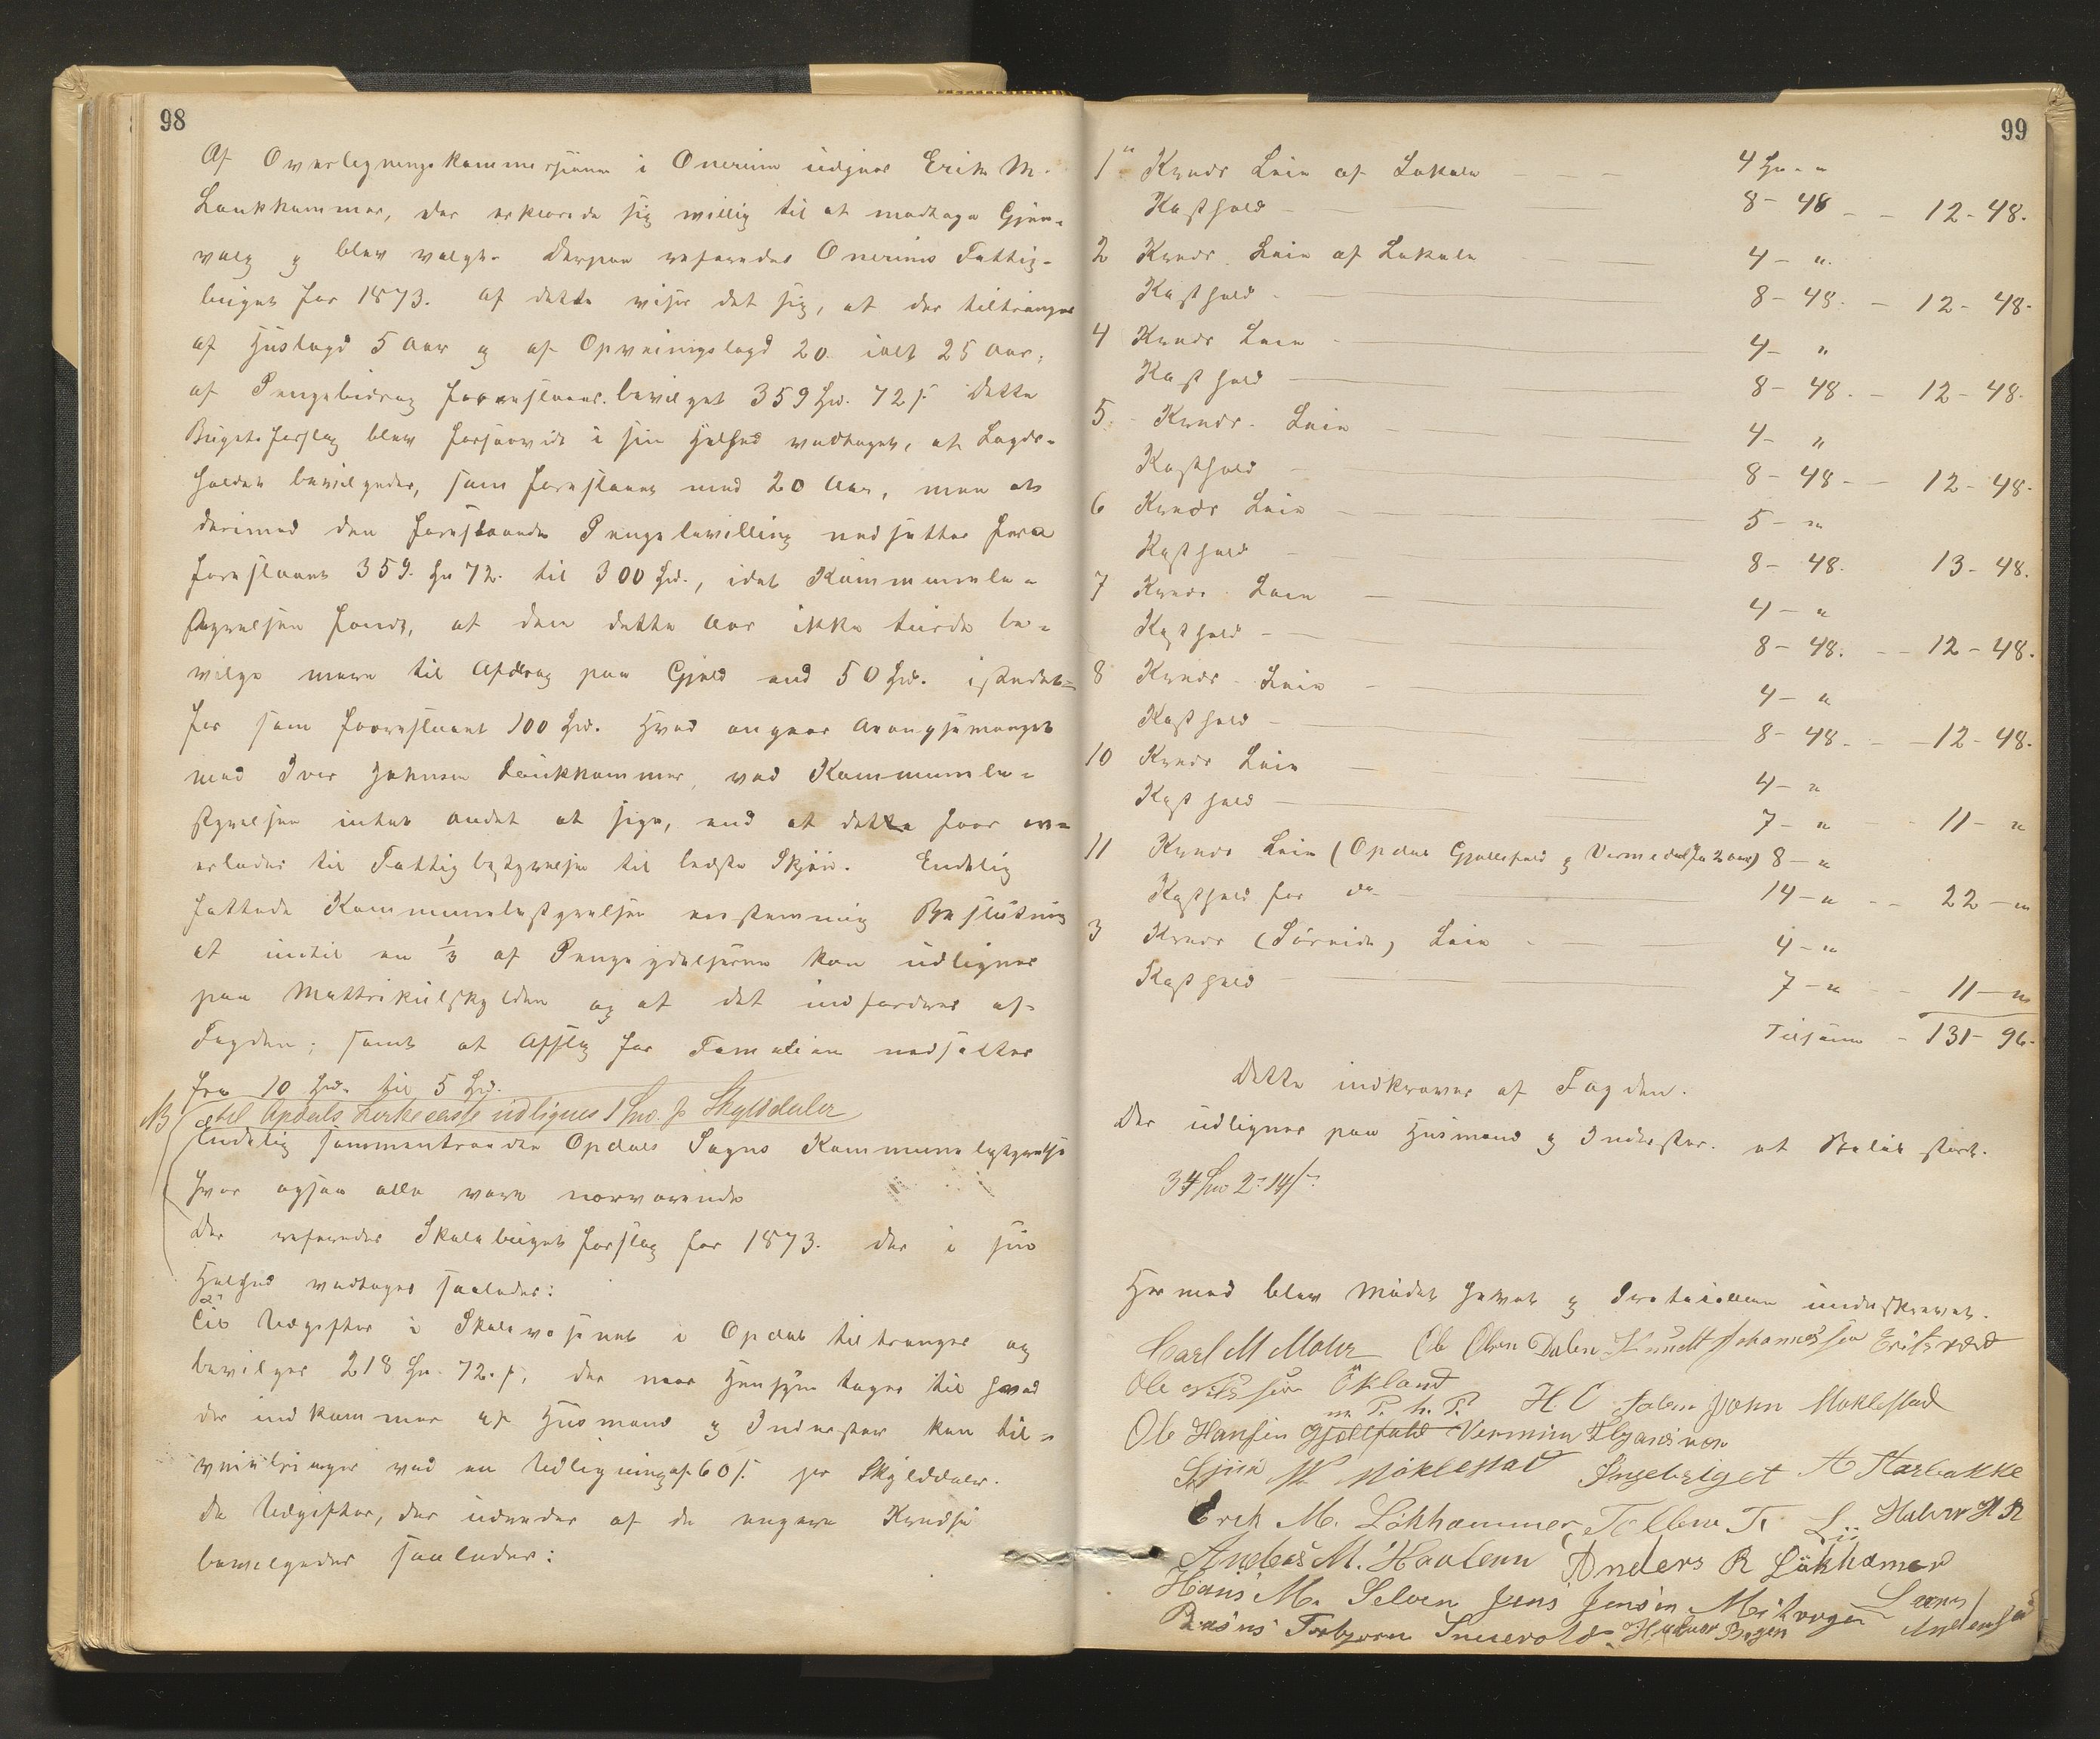 98
Af Overligningskommissjonen i Onerim udgaar Erik M.
Laukhammer, der erklærede sig willig til at modtage Gjen-
valg og blev valgt. Derpaa refereredes Onerims Fattig-
buget for 1873. Af dette viser det sig, at der tiltrænges
af Huslægd 5 Aar og af Opveiningslægd 20. ialt 25 Aar;
af Pengebidrag foreslaaes bevilget 359 Spd. 72 s. Dette
Bugetsforslag blev forsaavidt i sin Helhed vedtaget, at Lægds-
holdet bevilgedes, som foreslaaet med 20 Aar, men at
derimod den foreslaaede Pengebevilling nedsættes fra
foreslaaet 359. Spd 72. til 300 Spd., idet Kommunebe-
styrelsen fandt, at den dette Aar ikke turde be-
vilge mere til Afdrag paa Gjæld end 50 Spd. istedet-
for som foreslaaet 100 Spd. Hvad angaar Arangsjementet
med Iver Johnsen Laukhammer, ved Kommunebe-
styrelsen intet andet at sige, end at dette faar ov-
erlades til Fattigbestyrelsen til bedste Skjøn. Endelig
fattede Kommunebestyrelsen enstemmig Beslutning
at indtil en 1/3 af Pengeydelserne kan udlignes
paa Mattrikulskylden og at det indfordres af
Fogden; samt at Afslag for Familien nedsættes
fra 10 Spd. til 5 Spd.
NB til Opdals Kirkecasse udlignes 1 Spd. pr Skylddaler
Endelig sammentraadte Opdals Sogns Kommunebestyrelse
hvor ogsaa alle vare nærværende
Der refereredes Skolebugetsforslag for 1873. der i sin
Helhed vedtoges saaledes:
Til Udgifter i Skolevæsenet i Opdal tiltrænges og
bevilges 218 Spd. 72 s., der naar Hensyn tages til hvad
der indkommer af Husmænd og Inderster kan til-
veiebringes ved en Udligning af 60 s. per Skylddaler.
De Udgifter, der udredes af de engere Kredse
bevilgedes saaledes:
99
1 Kreds Leie af Lokale — — — 4 Spd - "
Kosthold — 8 - 48 - - 12 - 48.
2 Kreds Leie af Lokale — 4 - "
Kosthold — 8 - 48. - 12 - 48.
4 Kreds Leie — 4 - "
Kosthold — 8 - 48. - 12 - 48.
5. Kreds. Leie — 4 - "
Kosthold — 8 - 48 - - 12 - 48.
6 Kreds Leie — 5 - "
Kosthold — 8 - 48. 13 - 48.
7 Kreds Leie — 4 - "
Kosthold — 8 - 48. - - 12 - 48.
8 Kreds. Leie — 4 - "
Kosthold — 8 - 48. - 12 - 48.
10 Kreds Leie — 4 - "
Kosthold — 7 - " - 11 - "
11 Kreds Leie (Opdal Gjøllefald og Vermedal for 2 aar) 8 - "
Kosthold for do — 14 - " - - 22 - "
3 Kreds (Søreide) Leie — 4 - "
Kosthold — 7 - " - 11 - "
Tilsamm - 131 - 96.
Dette indkræves af Fogden.
Der udlignes paa Husmænd og Inderster. et Beløb stort.
34 Spd 2 14 s
Hermed blev Mødet hævet og Protocollen underskrevet.
Carl M Mohr Ole Olsen Dalen Knudt Johannessen Eritsvæd
Ole Nilssøn Økland
m. P. h. P. H. C John Møklestad
Ole Hansen Gjøllefald
M Møklestad Ingebriget A Harbakke
Erik M. Lökhammer Tollew T. Li Halvor H R
Andeas M. Haalenn Anders R Løkhamer
Hans M. Selven Jens Jensen Meitvogen
Rasmus Torbjørn Halvor Bogen